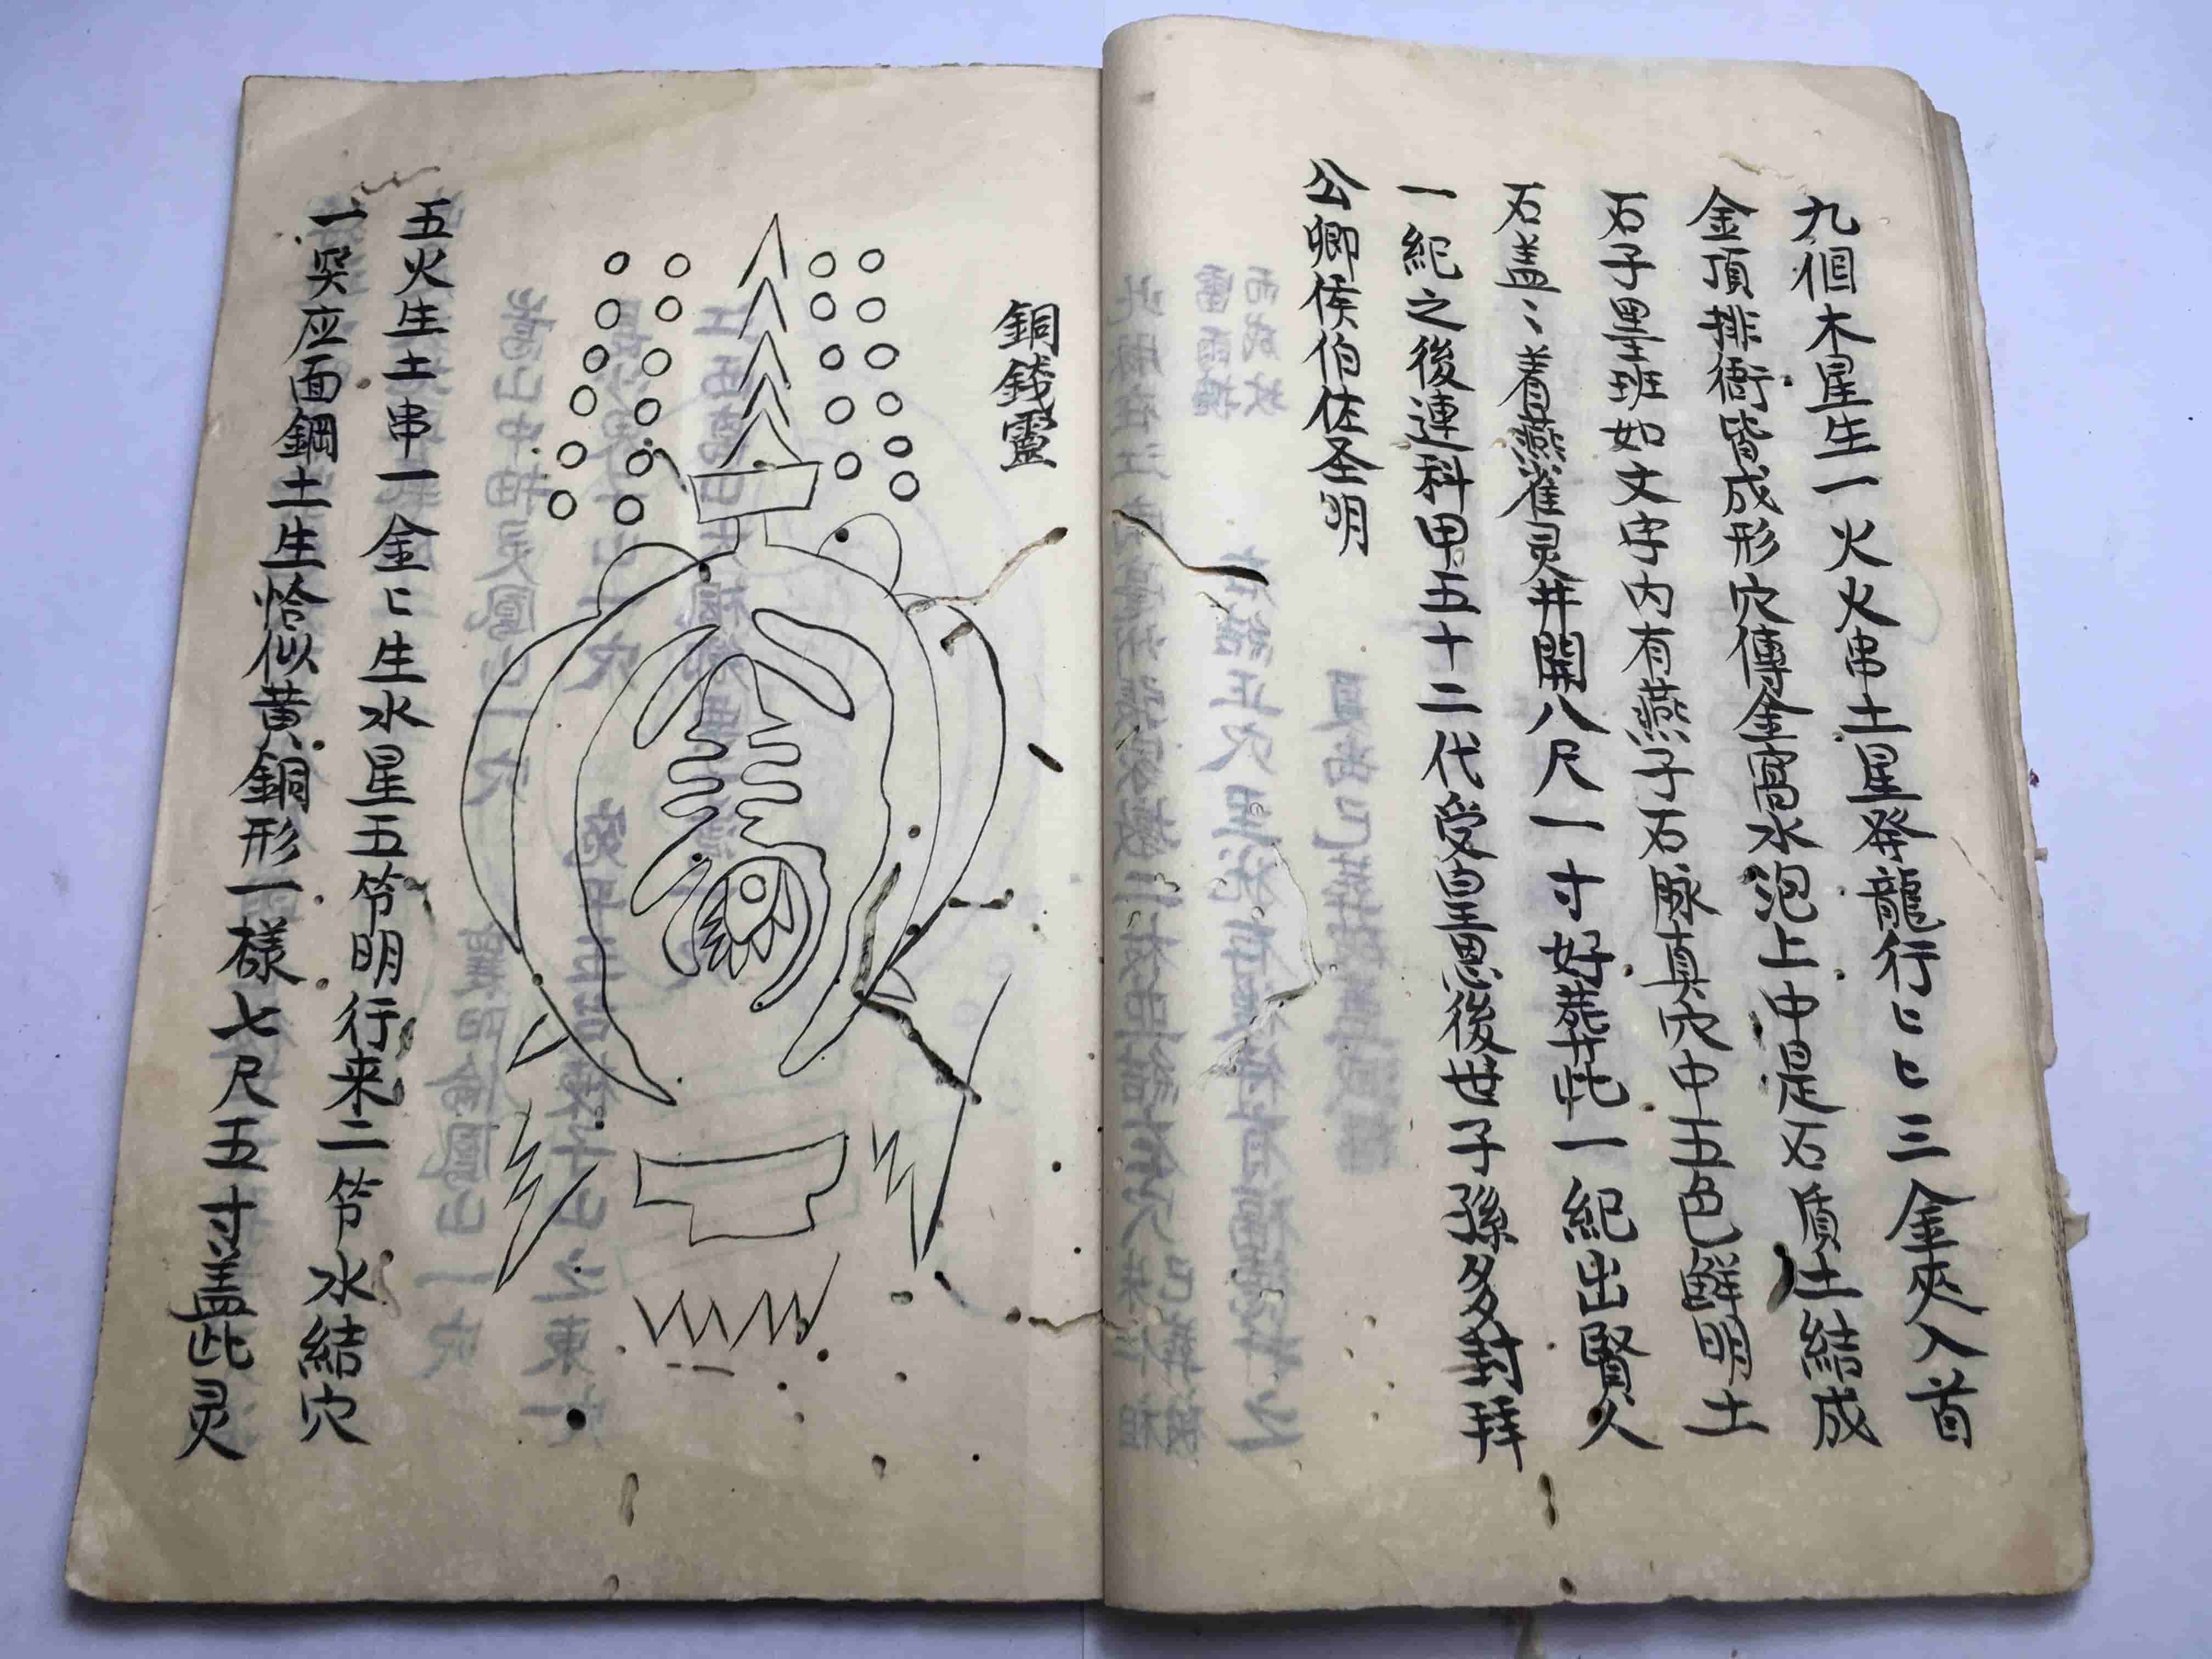 九個木星生一火火串土星發龍行〻〻三金夾入首
金頂排衙皆成形穴傳金窩水泡上中是石質土結成
石子里班如文字內有燕子石脉真穴中五色鮮明土
石盖〻着燕雀灵井開八尺一寸好葬此一紀出賢人
一紀之後連科甲五十二代受皇恩後世子孫多封拜
公卿侯伯佐圣明
銅錢靈
五火生土串一金〻生水星五节明行来二节水結穴
一突应面鋼土生恰似黄銅形一樣七尺五寸盖此灵